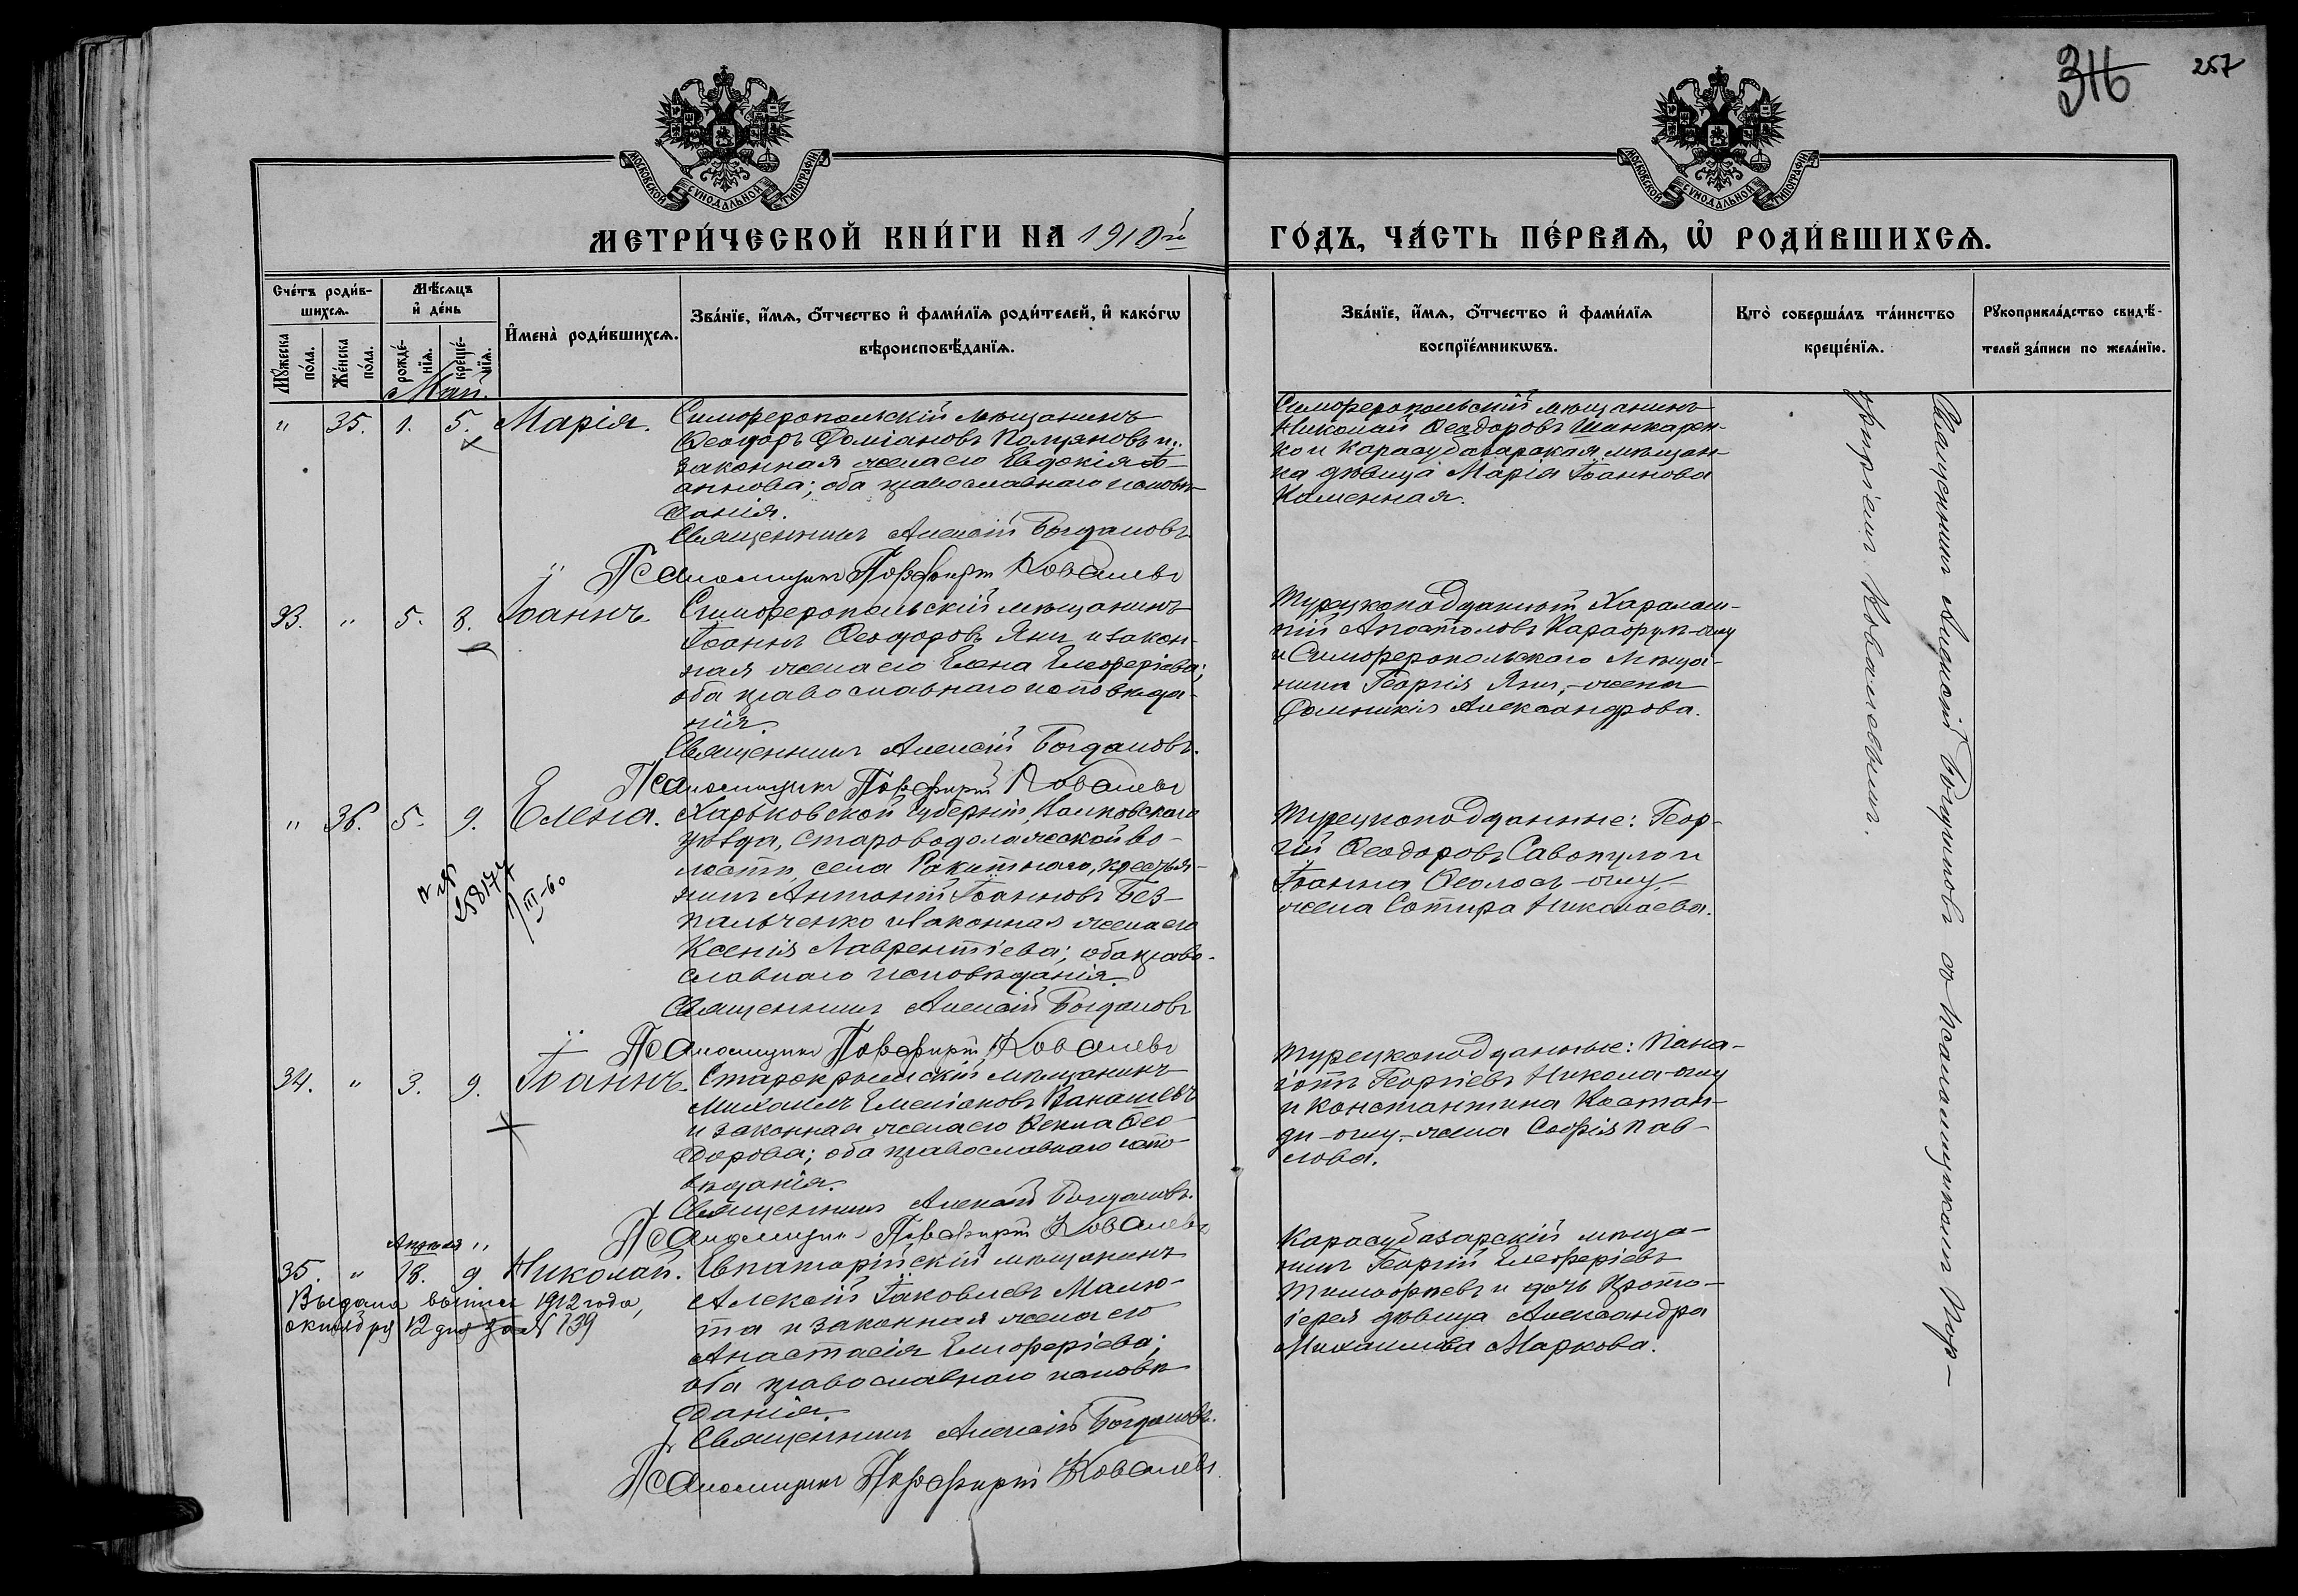 316 257
МОСКОВСКОЙ СѴНОДАЛЬНОЙ ТИПОГРАФІИ
МОСКОВСКОЙ СѴНОДАЛЬНОЙ ТИПОГРАФІИ
МЕТРИ́ЧЕСКОЙ КНИ́ГИ НА 1910й
ГО́ДЪ, ЧА́СТЬ ПЕ́РВАѦ, Ѡ҆ РОДИ́ВШИХСѦ.
Сче́тъ роди́в-
шихсѧ.
Мꙋ́жеска по́ла.
Же́нска по́ла.
Мѣ́сѧцъ
и҆ де́нь
рожде́-
нїѧ.
креще́-
нїѧ.
И҆мена̀ роди́вшихсѧ.
Зва́нїе, и҆́мѧ, ѻ҆́тчество и҆ фами́лїѧ роди́телей, и҆ како́гѡ
вѣроисповѣ́данїѧ.
Зва́нїе, и҆́мѧ, ѻ҆́тчество и҆ фами́лїѧ
воспрїе́мникѡвъ.
Кто̀ соверша́лъ та́инство
креще́нїѧ.
Рꙋкоприкла́дство свидѣ́-
телей за́писи по жела́нїю.
Май.
" 35. 1. 5. Марія.
Симферопольскій мѣщанинъ
Ѳеодоръ Доміановъ и
законная жена его Евдокія Іо-
аннова; оба православнаго исповѣ-
данія.
Священникъ Алексій Богдановъ
Псаломщикъ Порфирій Ковалевъ
Симферопольскій мѣщанинъ
Николай Ѳеодоровъ Шинкарен-
ко и Карасубазарская мѣщан-
ка дѣвица Марія Іоаннова
Каменная.
33. " 5. 8. Іоаннъ.
Симферопольскій мѣщанинъ
Іоаннъ Ѳеодоровъ Яни и закон-
ная жена его Елена Елеферіева;
оба православнаго исповѣда-
нія.
Священникъ Алексій Богдановъ.
Псаломщикъ Порфирій Ковалевъ
Турецкоподданный Харалам-
пій Апостоловъ
и Симферопольскаго мѣща-
нина Георгія Яни, - жена
Домникія Александрова.
" 36. 5. 9. Елена.
Харьковской губерніи, Валковскаго
уѣзда, Староводолажской во-
лости, села Ракитнаго, крестья-
нинъ Антоній Іоанновъ Без-
пальченко и законная жена его
Ксенія Лаврентіева; оба право-
славнаго исповѣданія.
Священникъ Алексій Богдановъ
Псаломщикъ Порфирій Ковалевъ
258177
III-60
Турецкоподданные: Геор-
гій Ѳеодоровъ Савопуло и
Іоанна Ѳеолог-оглу, -
жена Сотира Николаева.
34. " 3. 9. Іоаннъ.
Старокрымскій мѣщанинъ
Михаилъ Емеліановъ
и законная жена его Ѳекла Ѳео-
дорова; оба православнаго испо-
вѣданія.
Священникъ Алексій Богдановъ.
Псаломщикъ Порфирій Ковалевъ
Турецкоподданные: Пана-
іотъ Георгіевъ Никола-оглу
и Константина Костан-
ди-оглу, - жена Софія Пав-
лова.
Апрѣля "
35. " 18. 9. Николай.
Выдана выпись 1912 года,
октября 12 дня за № 139
Евпаторійскій мѣщанинъ
Алексій Іаковлевъ Малю-
та и законная жена его
Анастасія Елеферіева;
оба православнаго исповѣ-
данія.
Священникъ Алексій Богдановъ.
Псаломщикъ Порфирій Ковалевъ.
Карасубазарскій мѣща-
нинъ Георгій Елеферіевъ
и дочь Прото-
іерея дѣвица Александра
Михаилова Маркова.
Священникъ Алексій Богдановъ съ псаломщикомъ Пор-
фиріемъ Ковалевымъ.